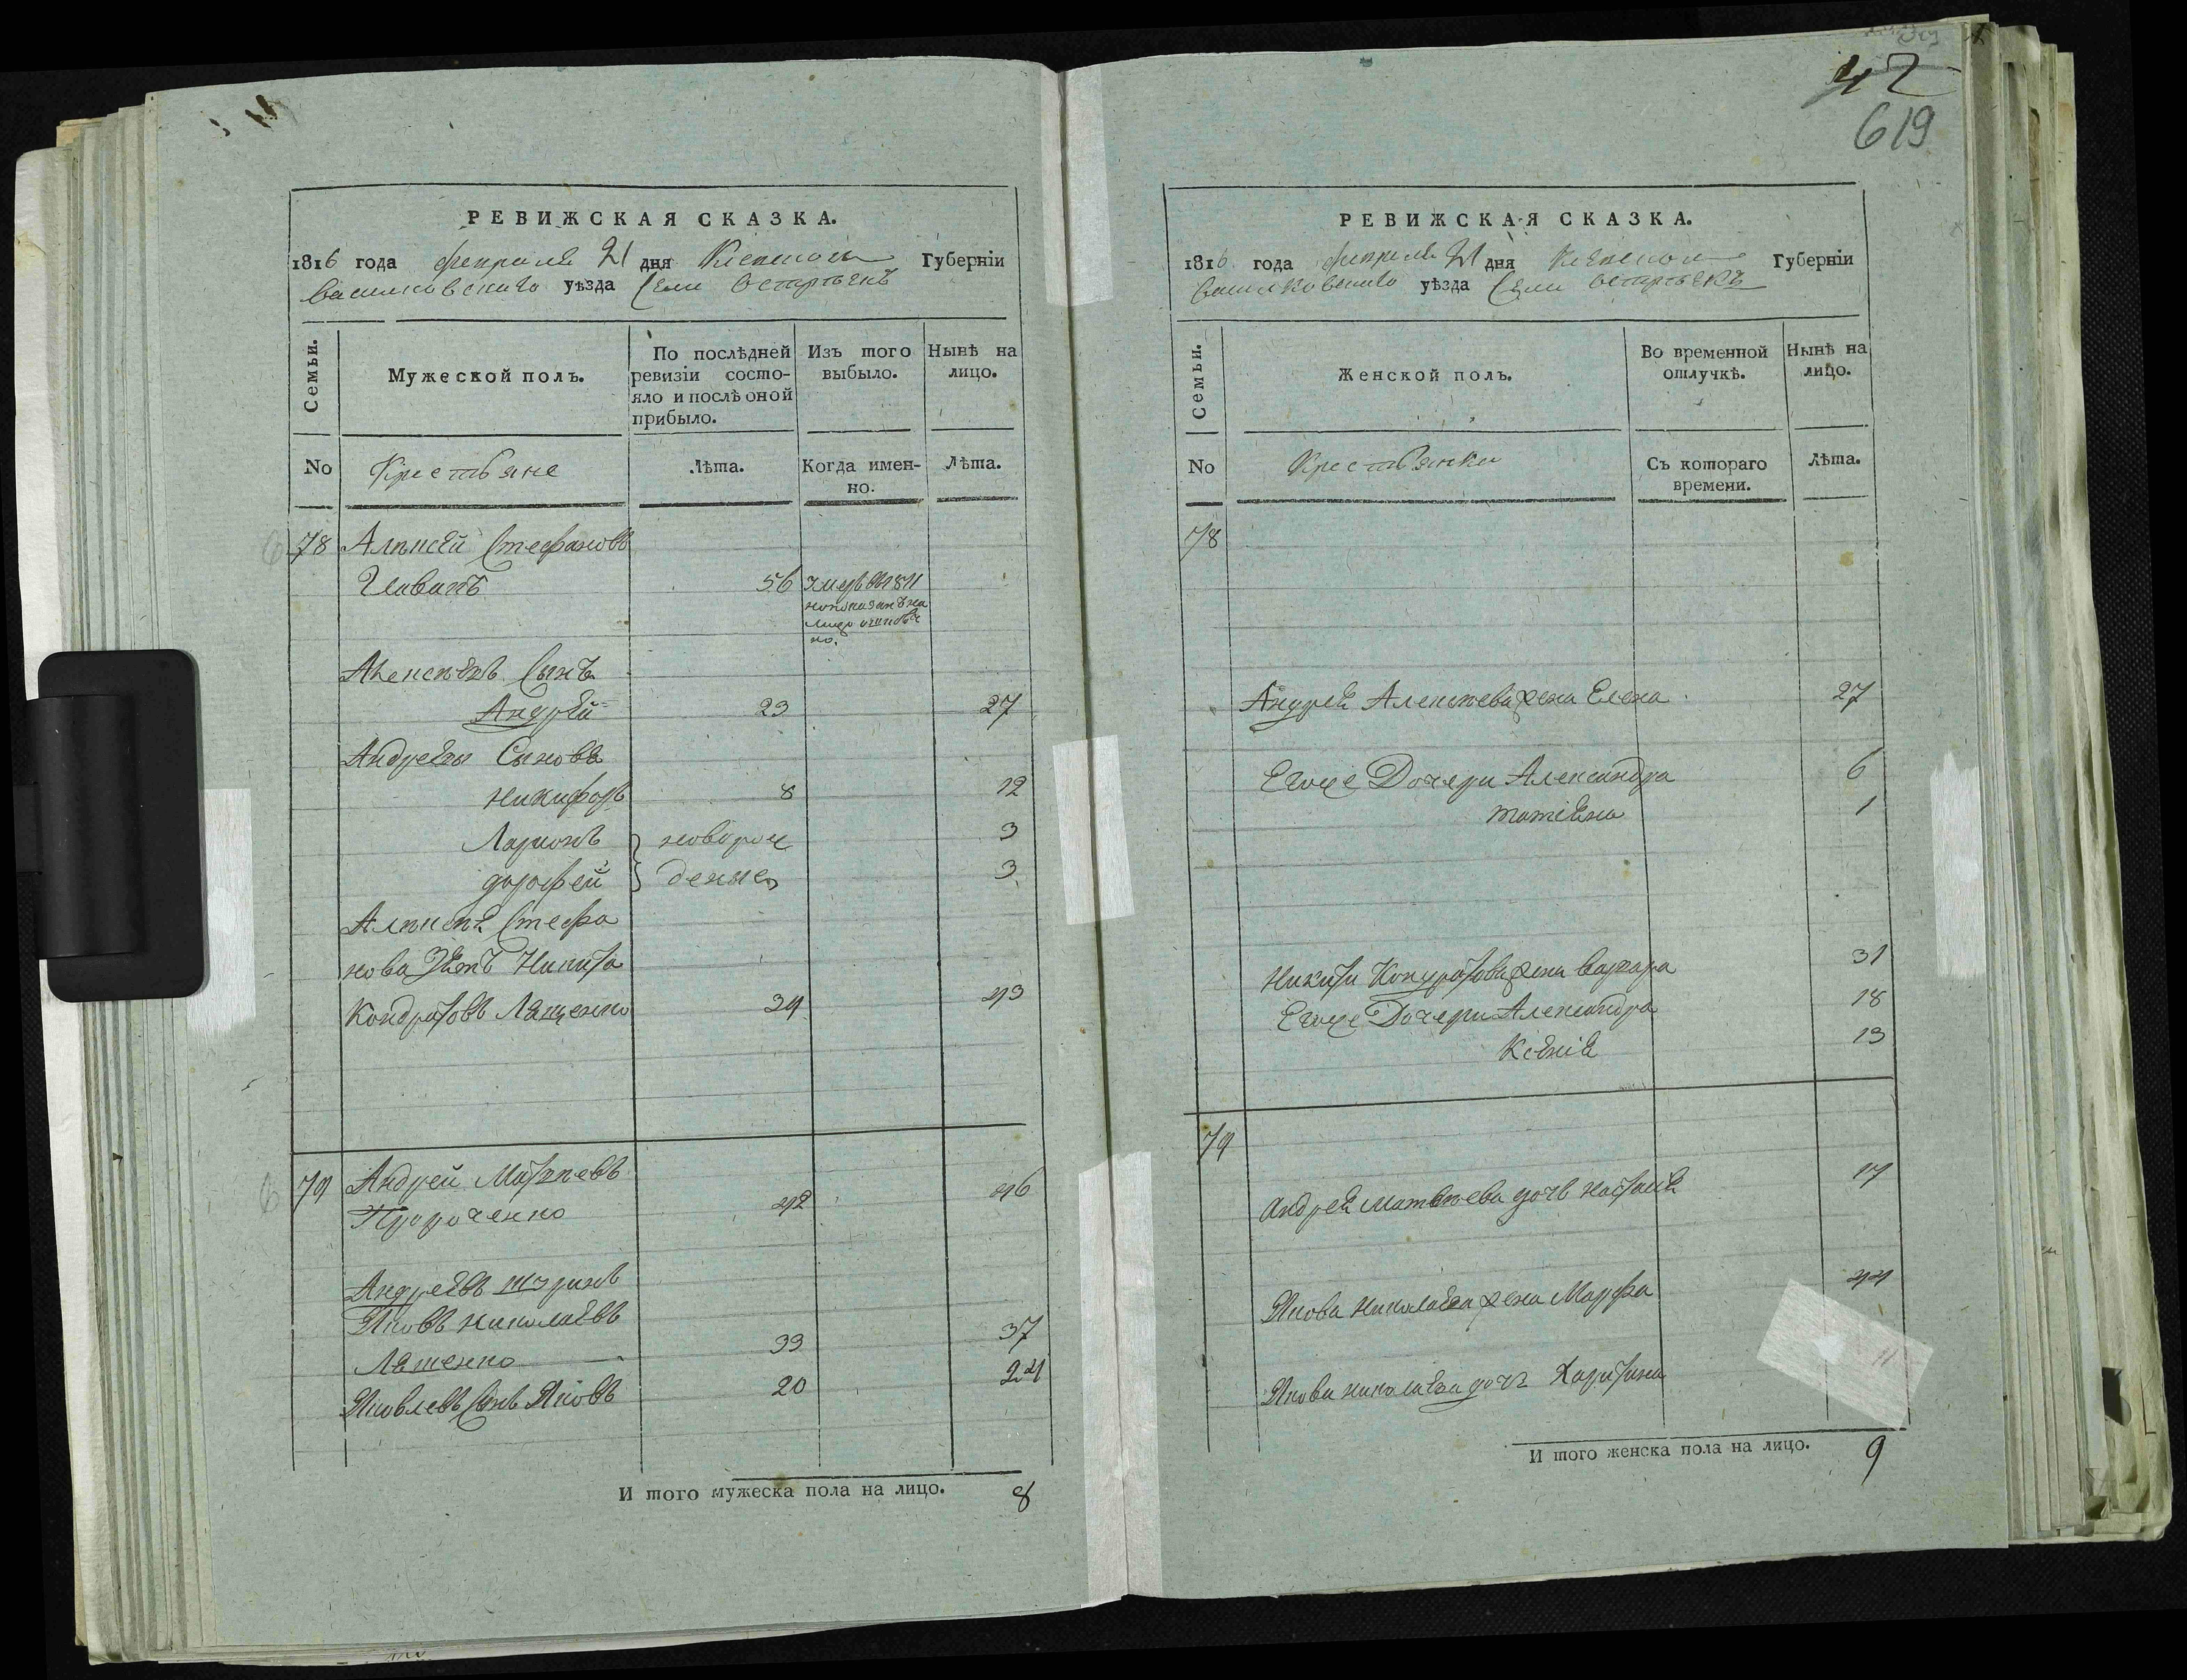 42
619
РЕВИЖСКАЯ СКАЗКА.
1816 года февраля 21 дня Кіевской Губерніи
Васильковского уѣзда Села Острѣекъ
Семьи.
Мужеской полъ.
По послѣдней ревизіи состояло и послѣ оной прибыло.
Изъ того выбыло.
Нынѣ на лицо.
No
Крестьяне
Лѣта.
Когда именно.
Лѣта.
78 Алексѣй Стефановъ
56 умеръ 1811
но показанъ на
лицо
но.
Алексѣевъ Сынъ
Андрей 23 27
Андреевы Сыновя
Никифоръ 8 12
Ларионъ новорож 3
дорофей денные 3
Алексѣя Стефа
нова Зять Никита
Кондратовъ Лященко 39 43
79 Андрей Матвѣевъ
42 46
Андреевъ шуринъ
Яковъ Николаевъ
Ляшенко 33 37
Яковлевъ Сынъ Яковъ 20 24
И того мужеска пола на лицо. 8
РЕВИЖСКАЯ СКАЗКА.
1816 года февраля 21 дня Кіевской Губерніи
Васильковского уѣзда Села Острѣекъ
Семьи.
Женской полъ.
Во временной отлучкѣ.
Нынѣ на лицо.
No
Крестьянки
Съ котораго времени.
Лѣта.
78
Андрея Алексѣева жена Елена 27
Егоже Дочери Александра 6
татіяна 1
Никиты Кондратова жена варвара 31
Егоже Дочери Александра 18
Ксенія 13
79
Андрея матвѣева дочь настасія 17
Якова николаева жена Марфа 44
Якова николаева дочь Харитина 11
И того женска пола на лицо. 9